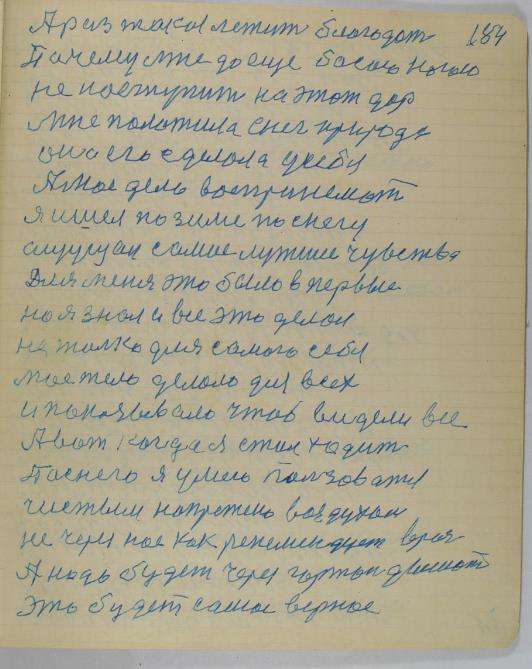 А раз такая летит благодат 184
Почему мне до еще босою ногою
не поступит на этот дар
мне положила снег природа
она его сделала у себя
А мое дель воспринемат
я ишел по зиме по снегу
ощущал самое лутшие чувства
Для меня это было в первые
но я знал и все это делал
не толко для самого себя
мое тело делало для всех
и показывало чтоб видели все
А вот когда я стал ходит
По снего я умею ползоватя
чистым напрежено воздухом
не чере нос как рекомендует врач
А надо будет через гортан дышат
Это будет самое верное